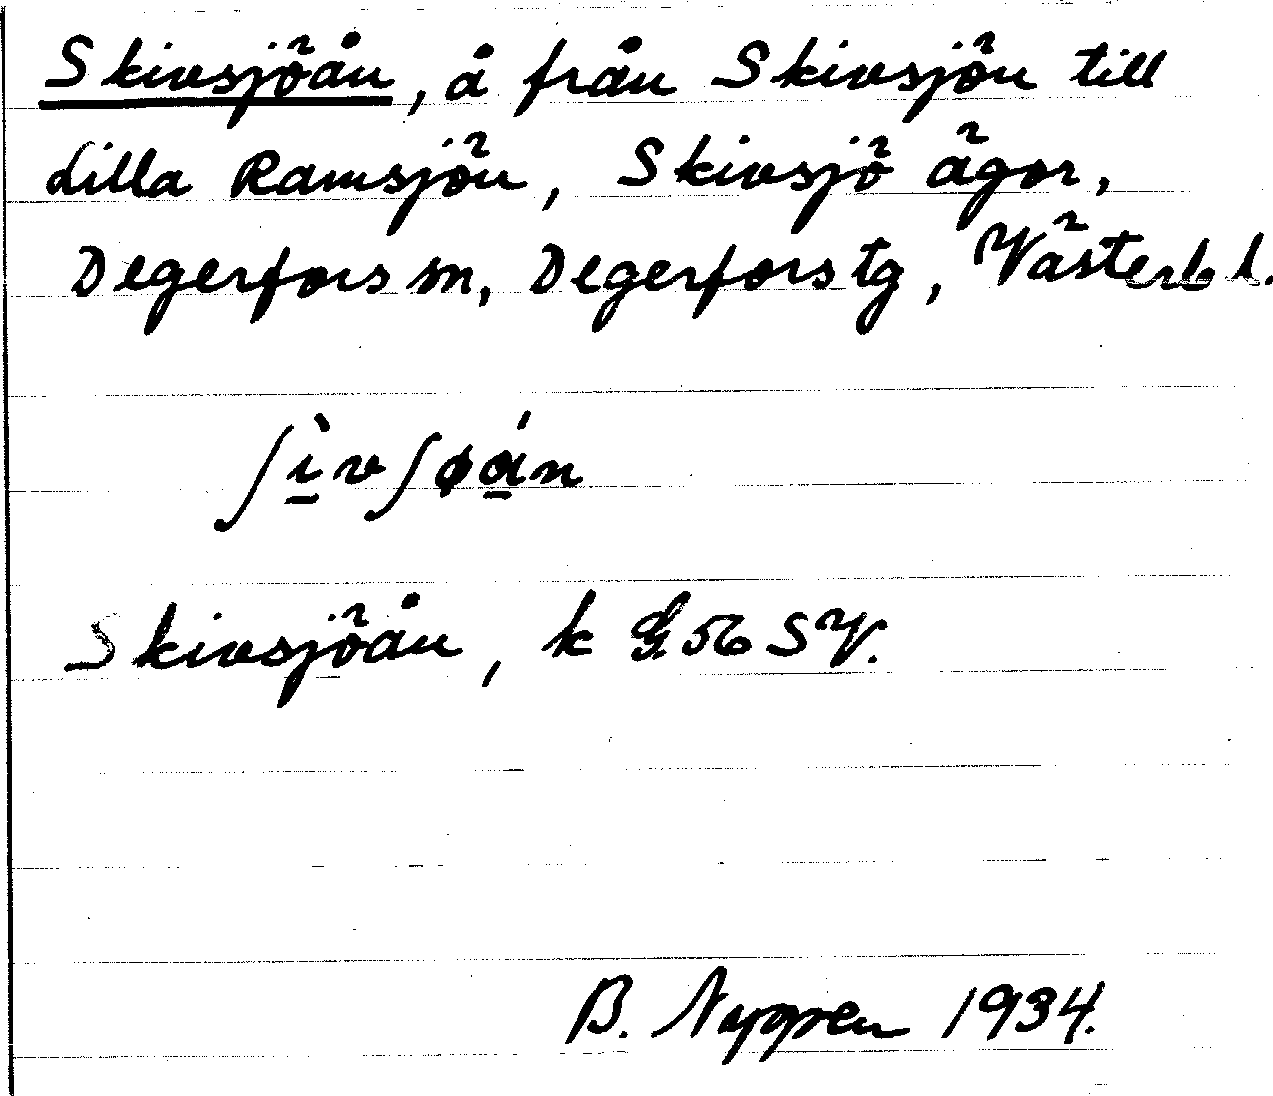 Skivsjöån, å från Skivsjön till
Lilla Ramsjön, Skivsjö ägor,
Degerfors sn, Degerfors tg, Västerb l.
ʃìvʃøán
Skivsjöån, k G 56 SV.
B. 1934.